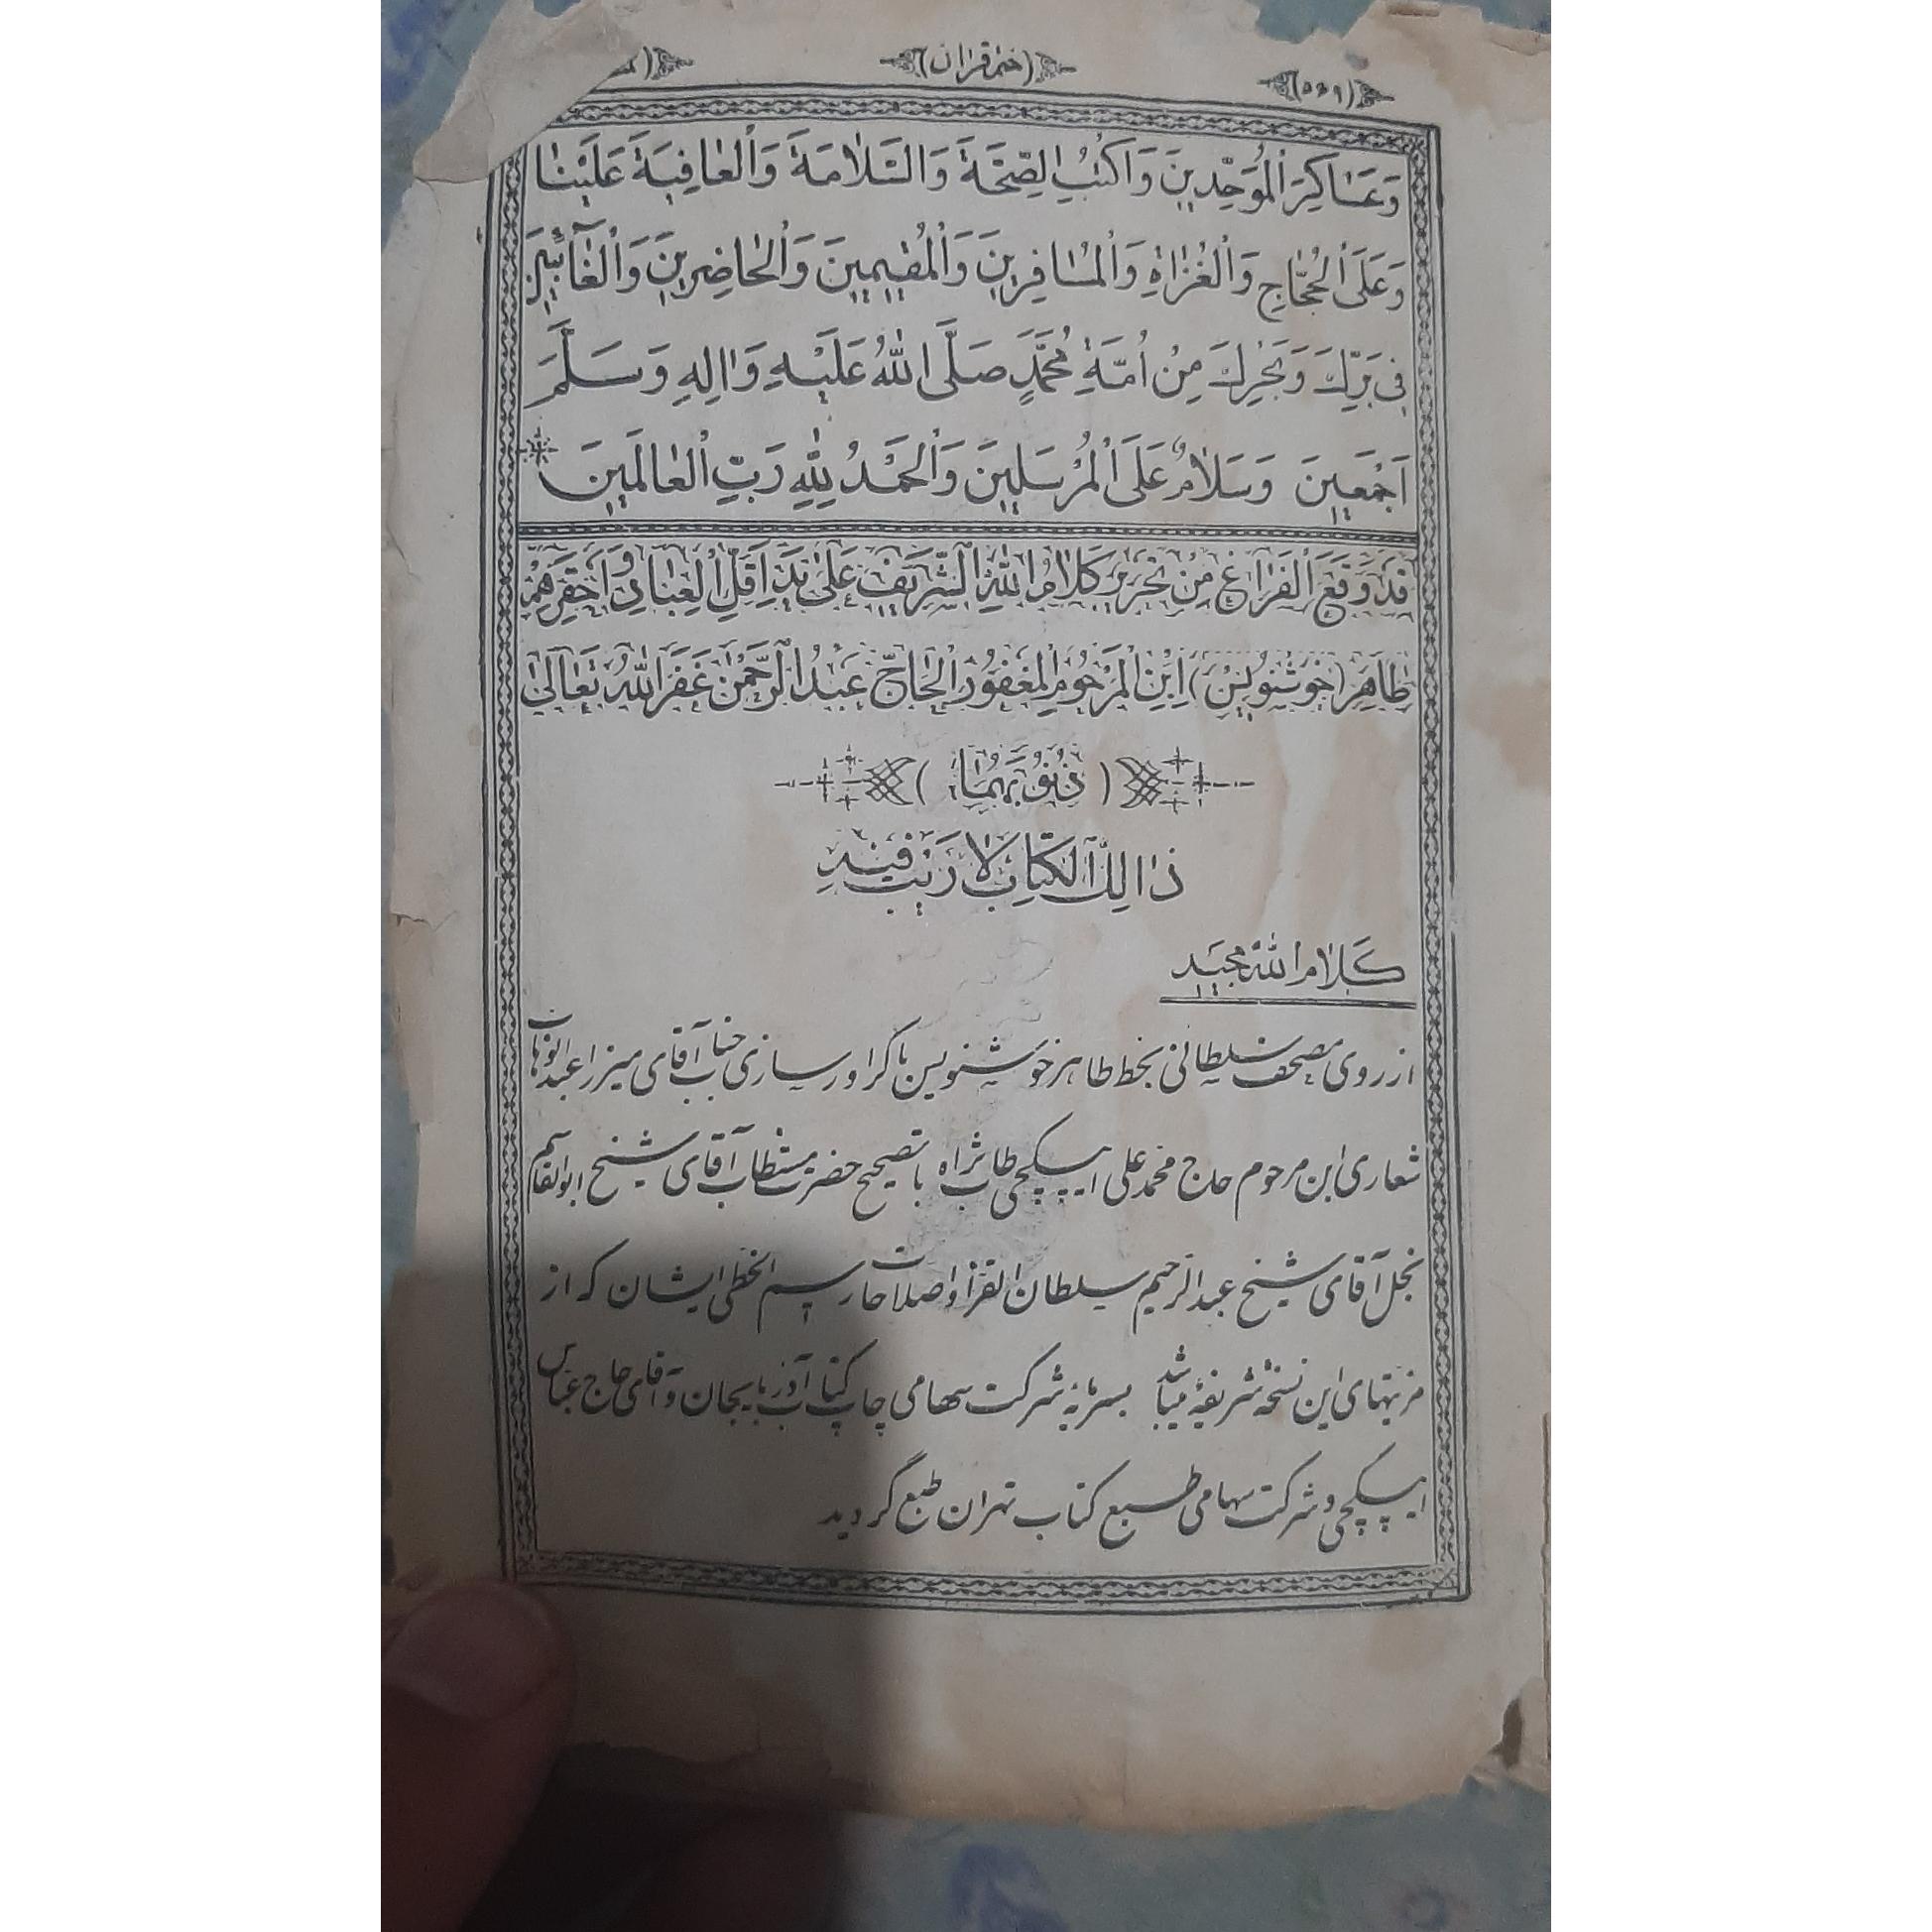 (٥٦٩) (ختم قران)
وَعَسٰاكِرَ الْمُوَحِّدِينَ وَاكْتُبِ الصِّحَّةَ وَالسَّلٰامَةَ وَالْعٰافِيَةَ عَلَيْنٰا
وَعَلَى الْحُجّٰاجِ وَالْغُزٰاةِ وَالْمُسٰافِرِينَ وَالْمُقِيمِينَ وَالْحٰاضِرِينَ وَالْغٰآئِبِينَ
فِى بَرِّكَ وَبَحْرِكَ مِنْ اُمَّةِ مُحَمَّدٍ صَلَّى اللّٰهُ عَلَيْهِ وَاٰلِهِ وَسَلَّمَ
اَجْمَعِينَ وَسَلٰامٌ عَلَى الْمُرْسَلِينَ وَالْحَمْدُ لِلّٰهِ رَبِّ الْعٰالَمِينَ
قَدْ وَقَعَ الْفَرٰاغُ مِنْ تَحْرِيرِ كَلٰامِ اللّٰهِ الشَّرِيفِ عَلٰى يَدِ اَقَلِّ الْعِبٰادِ وَاَحْقَرِهِمْ
طٰاهِرْ (خُوشْنِويسْ) اِبْنِ الْمَرْحُومِ الْمَغْفُورِ الْحٰاجّ عَبْدُ الرَّحْمٰنْ غَفَرَ اللّٰهُ تَعٰالىٰ
(ذُنُوبَهُمٰا)
ذٰالِكَ الْكِتٰابُ لٰا رَيْبَ فِيهِ
كَلٰامُ اللّٰهِ مَجيد
از روی مصحف سلطانی بخط طاهر خوشنویس با گراورسازی جناب آقای میرزا عبدالوهاب
شعاری ابن مرحوم حاج محمد علی ایپکچی طاب ثراه با تصحیح حضرت مستطاب آقای شیخ ابوالقاسم
نجل آقای شیخ عبدالرحیم سلطان القرّاء و اصلاحات رسم الخطی ایشان که از
مزیتهای این نسخهٔ شریفه میباشد بسرمایهٔ شرکت سهامی چاپ کتاب آذربایجان و آقای حاج عباس
ایپکچی و شرکت سهامی طبع کتاب تهران طبع گردید